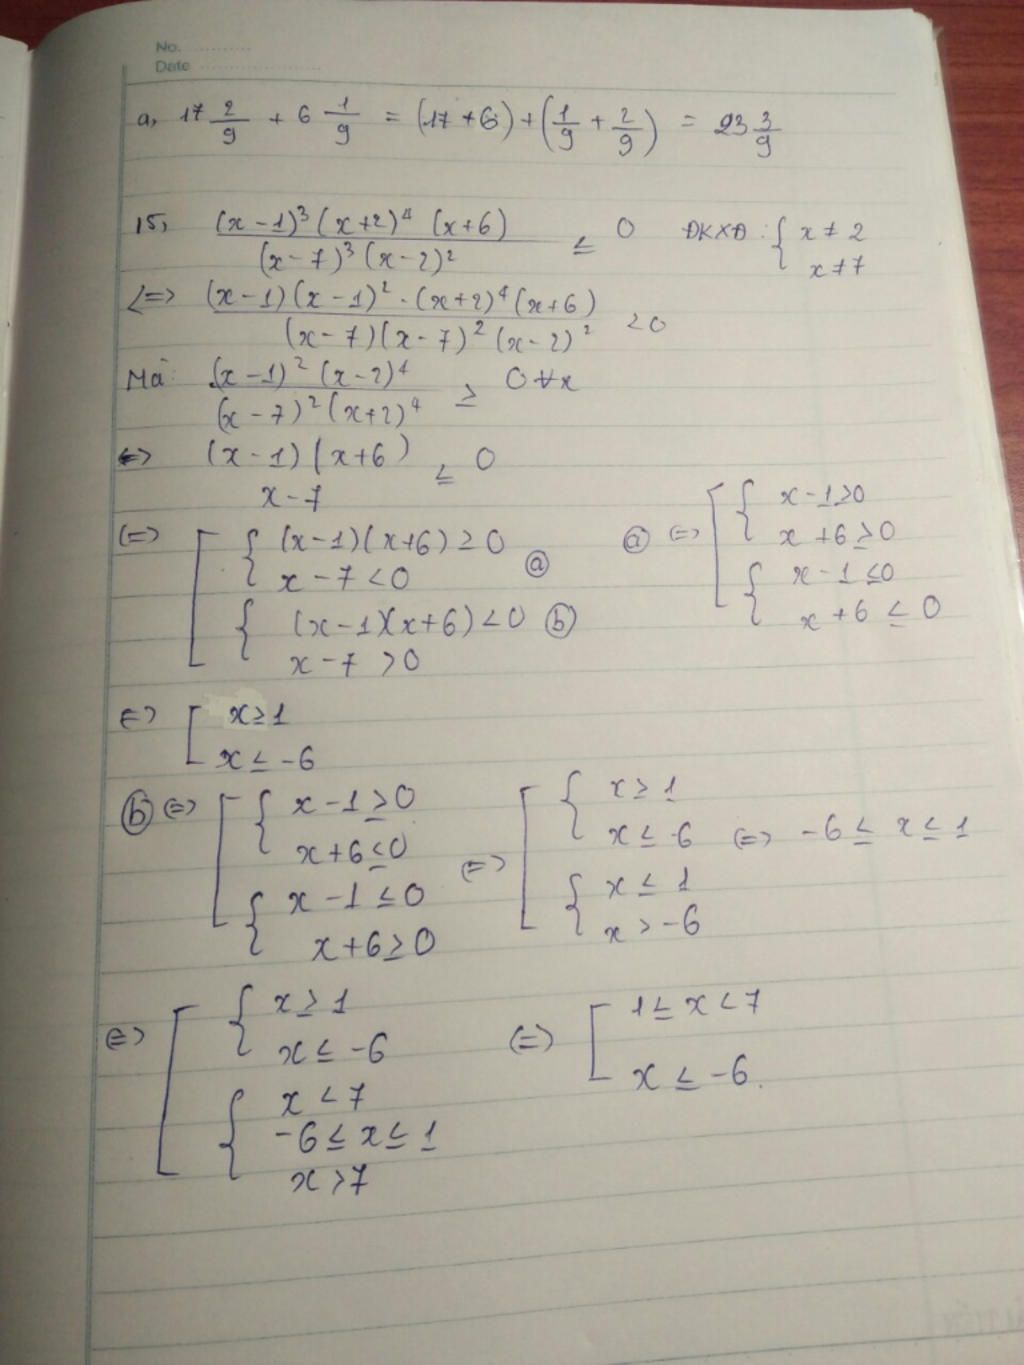 No. ..........
Date ....................
a, 17 2/9 + 6 1/9 = (17 + 6) + (1/9 + 2/9) = 23 3/9
15, (x - 1)³ (x + 2)⁴ (x + 6) / (x - 7)³ (x - 2)² ≤ 0 ĐKXĐ : { x ≠ 2
x ≠ 7
<=> (x - 1) (x - 1)² . (x + 2)⁴ (x + 6) / (x - 7) (x - 7)² (x - 2)² < 0
Mà : (x - 1)² (x - 2)⁴ / (x - 7)² (x + 2)⁴ ≥ 0 ∀x
<=> (x - 1) (x + 6) / x - 7 ≤ 0
<=> [ { (x - 1) (x + 6) ≥ 0
x - 7 < 0 ⓐ
{ (x - 1)(x + 6) < 0 ⓑ
x - 7 > 0
ⓐ <=> [ { x - 1 ≥ 0
x + 6 ≥ 0
{ x - 1 ≤ 0
x + 6 ≤ 0
<=> [ x ≥ 1
x ≤ -6
ⓑ <=> [ { x - 1 ≥ 0
x + 6 ≤ 0
{ x - 1 ≤ 0
x + 6 ≥ 0
<=> [ { x ≥ 1
x ≤ -6
{ x ≤ 1
x > -6
<=> -6 ≤ x ≤ 1
<=> [ { x ≥ 1
x ≤ -6
{ x < 7
-6 ≤ x ≤ 1
x > 7
<=> [ 1 ≤ x < 7
x ≤ -6.